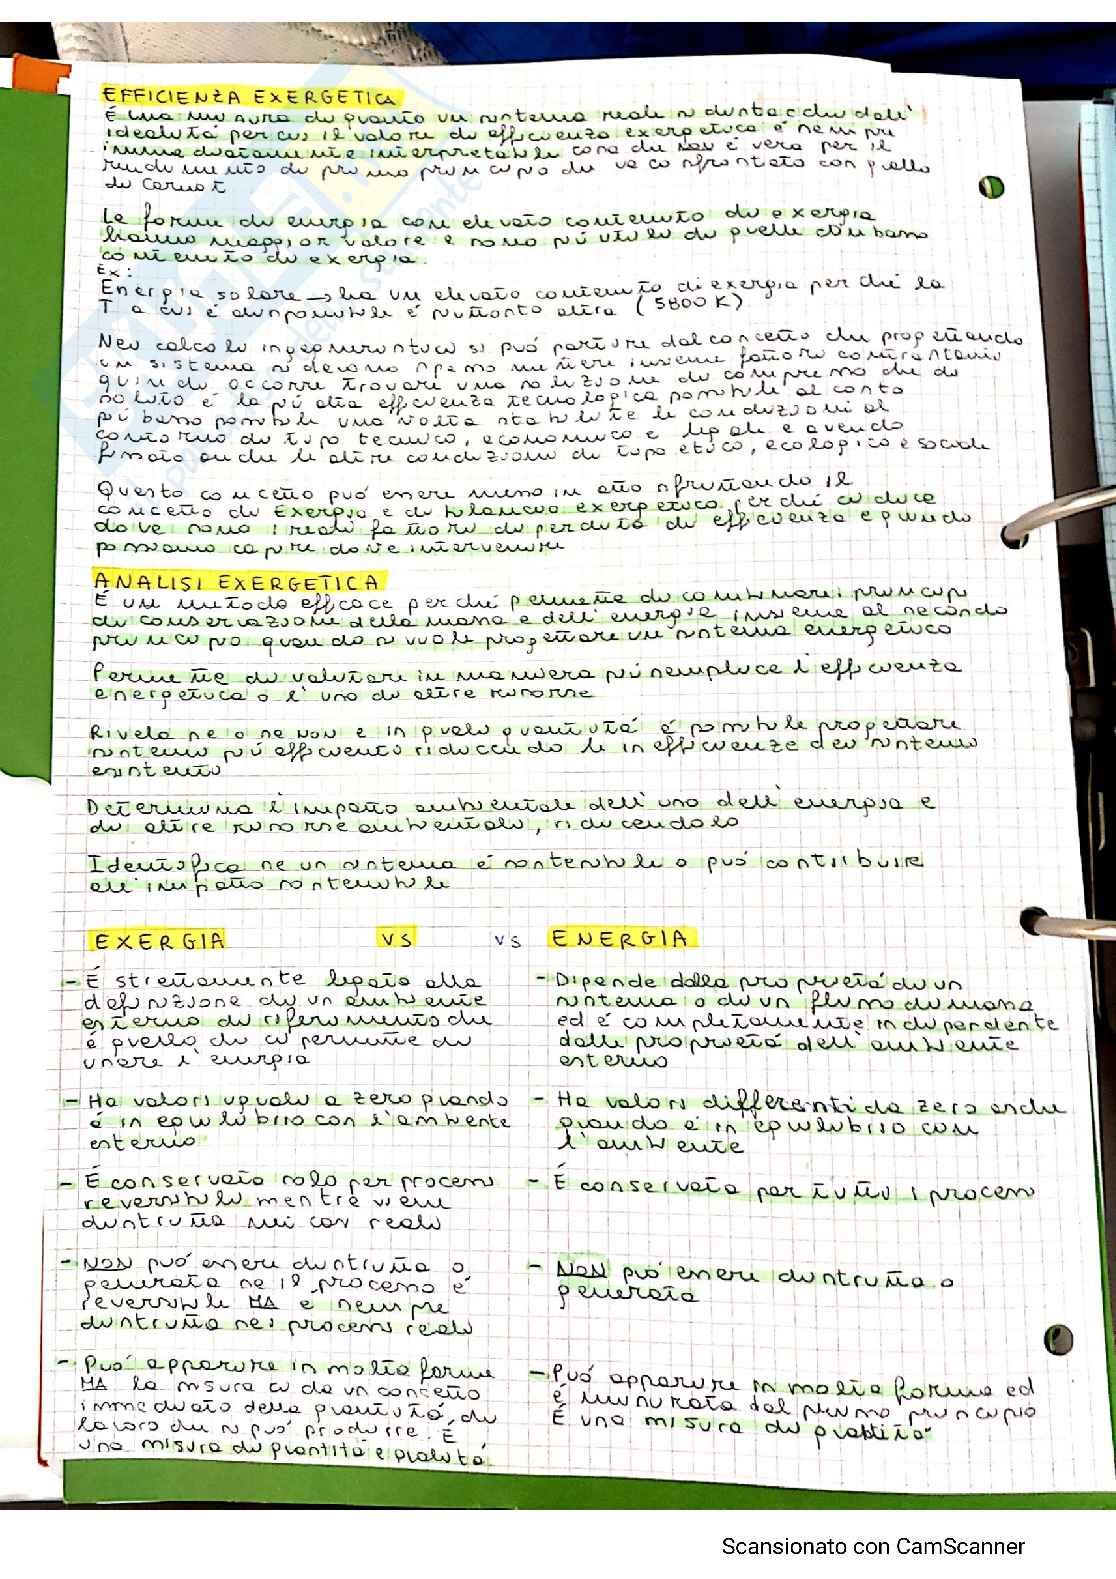 EFFICIENZA EXERGETICA
È una misura di quanto un sistema reale si distacchi dall'
idealità per cui il valore di efficienza exergetica è sempre
immediatamente interpretabile cosa che non è vera per il
rendimento di primo principio che va confrontato con quello
di Carnot
Le forme di energia con elevato contenuto di exergia
hanno maggior valore e sono più utili di quelle con basso
contenuto di exergia.
Ex:
Energia solare → ha un elevato contenuto di exergia perché la
T a cui è disponibile è piuttosto alta (5800K)
Nei calcolo ingegneristici si può partire dal concetto che progettando
un sistema si devono spesso mettere insieme fattori contrastanti
quindi occorre trovare una soluzione di compromesso che di
solito è la più alta efficienza tecnologica possibile al costo
più basso possibile una volta stabilite le condizioni al
contorno di tipo tecnico, economico e legale e avendo
fissato anche le altre condizioni di tipo etico, ecologico e sociale
Questo concetto può essere messo in atto sfruttando il
concetto di Exergia e di bilancio exergetico perché ci dice
dove sono i reali fattori di perdita di efficienza e quindi
possiamo capire dove intervenire
ANALISI EXERGETICA
È un metodo efficace perché permette di combinare i principi
di conservazione della massa e dell'energia insieme al secondo
principio quando si vuole progettare un sistema energetico
Permette di valutare in maniera più semplice l'efficienza
energetica o l'uso di altre risorse
Rivela se o se non e in quale quantità è possibile progettare
sistemi più efficienti riducendo le inefficienze dei sistemi
esistenti
Determina l'impatto ambientale dell'uso dell'energia e
di altre risorse ambientali, riducendolo
Identifica se un sistema è sostenibile o può contribuire
all'impatto sostenibile
EXERGIA VS VS ENERGIA
- È strettamente legato alla
definizione di un ambiente
esterno di riferimento che
è quello che ci permette di
usare l'energia
- Ha valori uguali a zero quando
è in equilibrio con l'ambiente
esterno
- È conservato solo per processi
reversibili mentre viene
distrutta nei casi reali
- NON può essere distrutta o
generata se il processo è
reversibile MA è sempre
distrutta nei processi reali
- Può apparire in molte forme
MA la misura ci dà un concetto
immediato della quantità di
lavoro che si può produrre. È
una misura di quantità e qualità
- Dipende dalla proprietà di un
sistema o di un flusso di massa
ed è completamente indipendente
dalle proprietà dell'ambiente
esterno
- Ha valori differenti da zero anche
quando è in equilibrio con
l'ambiente
- È conservata per tutti i processi
- NON può essere distrutta o
generata
- Può apparire in molte forme ed
è misurata dal primo principio
È una misura di
Scansionato con CamScanner